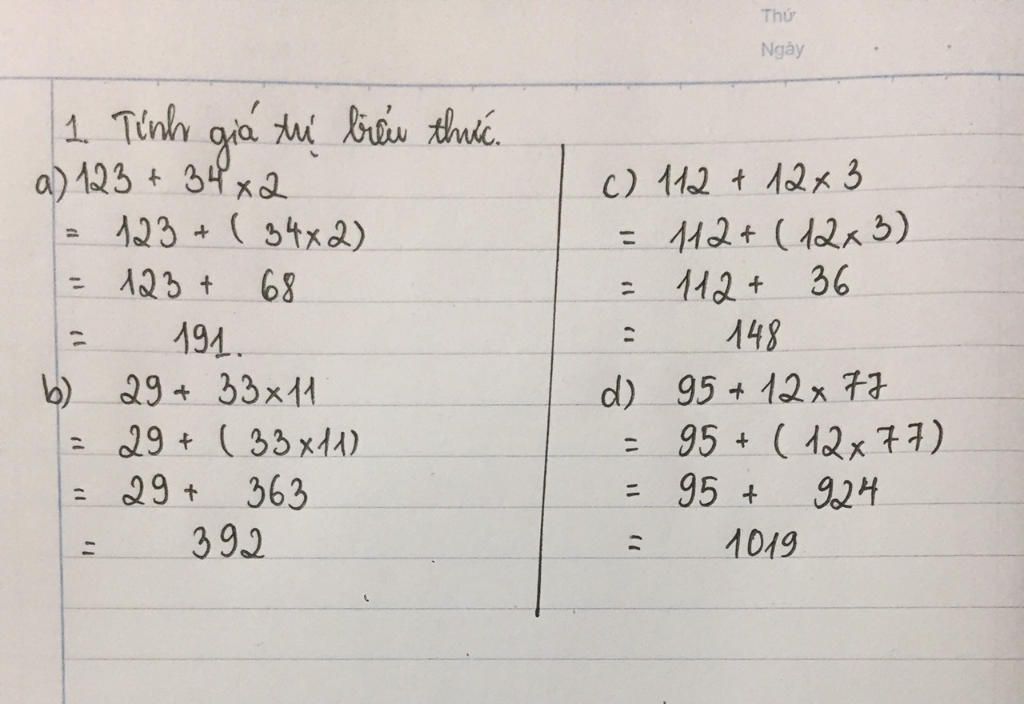 Thứ
Ngày
1. Tính giá trị biểu thức.
a) 123 + 34 x 2
= 123 + ( 34 x 2)
= 123 + 68
= 191.
b) 29 + 33 x 11
= 29 + ( 33 x 11)
= 29 + 363
= 392
c) 112 + 12 x 3
= 112 + ( 12 x 3)
= 112 + 36
= 148
d) 95 + 12 x 77
= 95 + ( 12 x 77)
= 95 + 924
= 1019